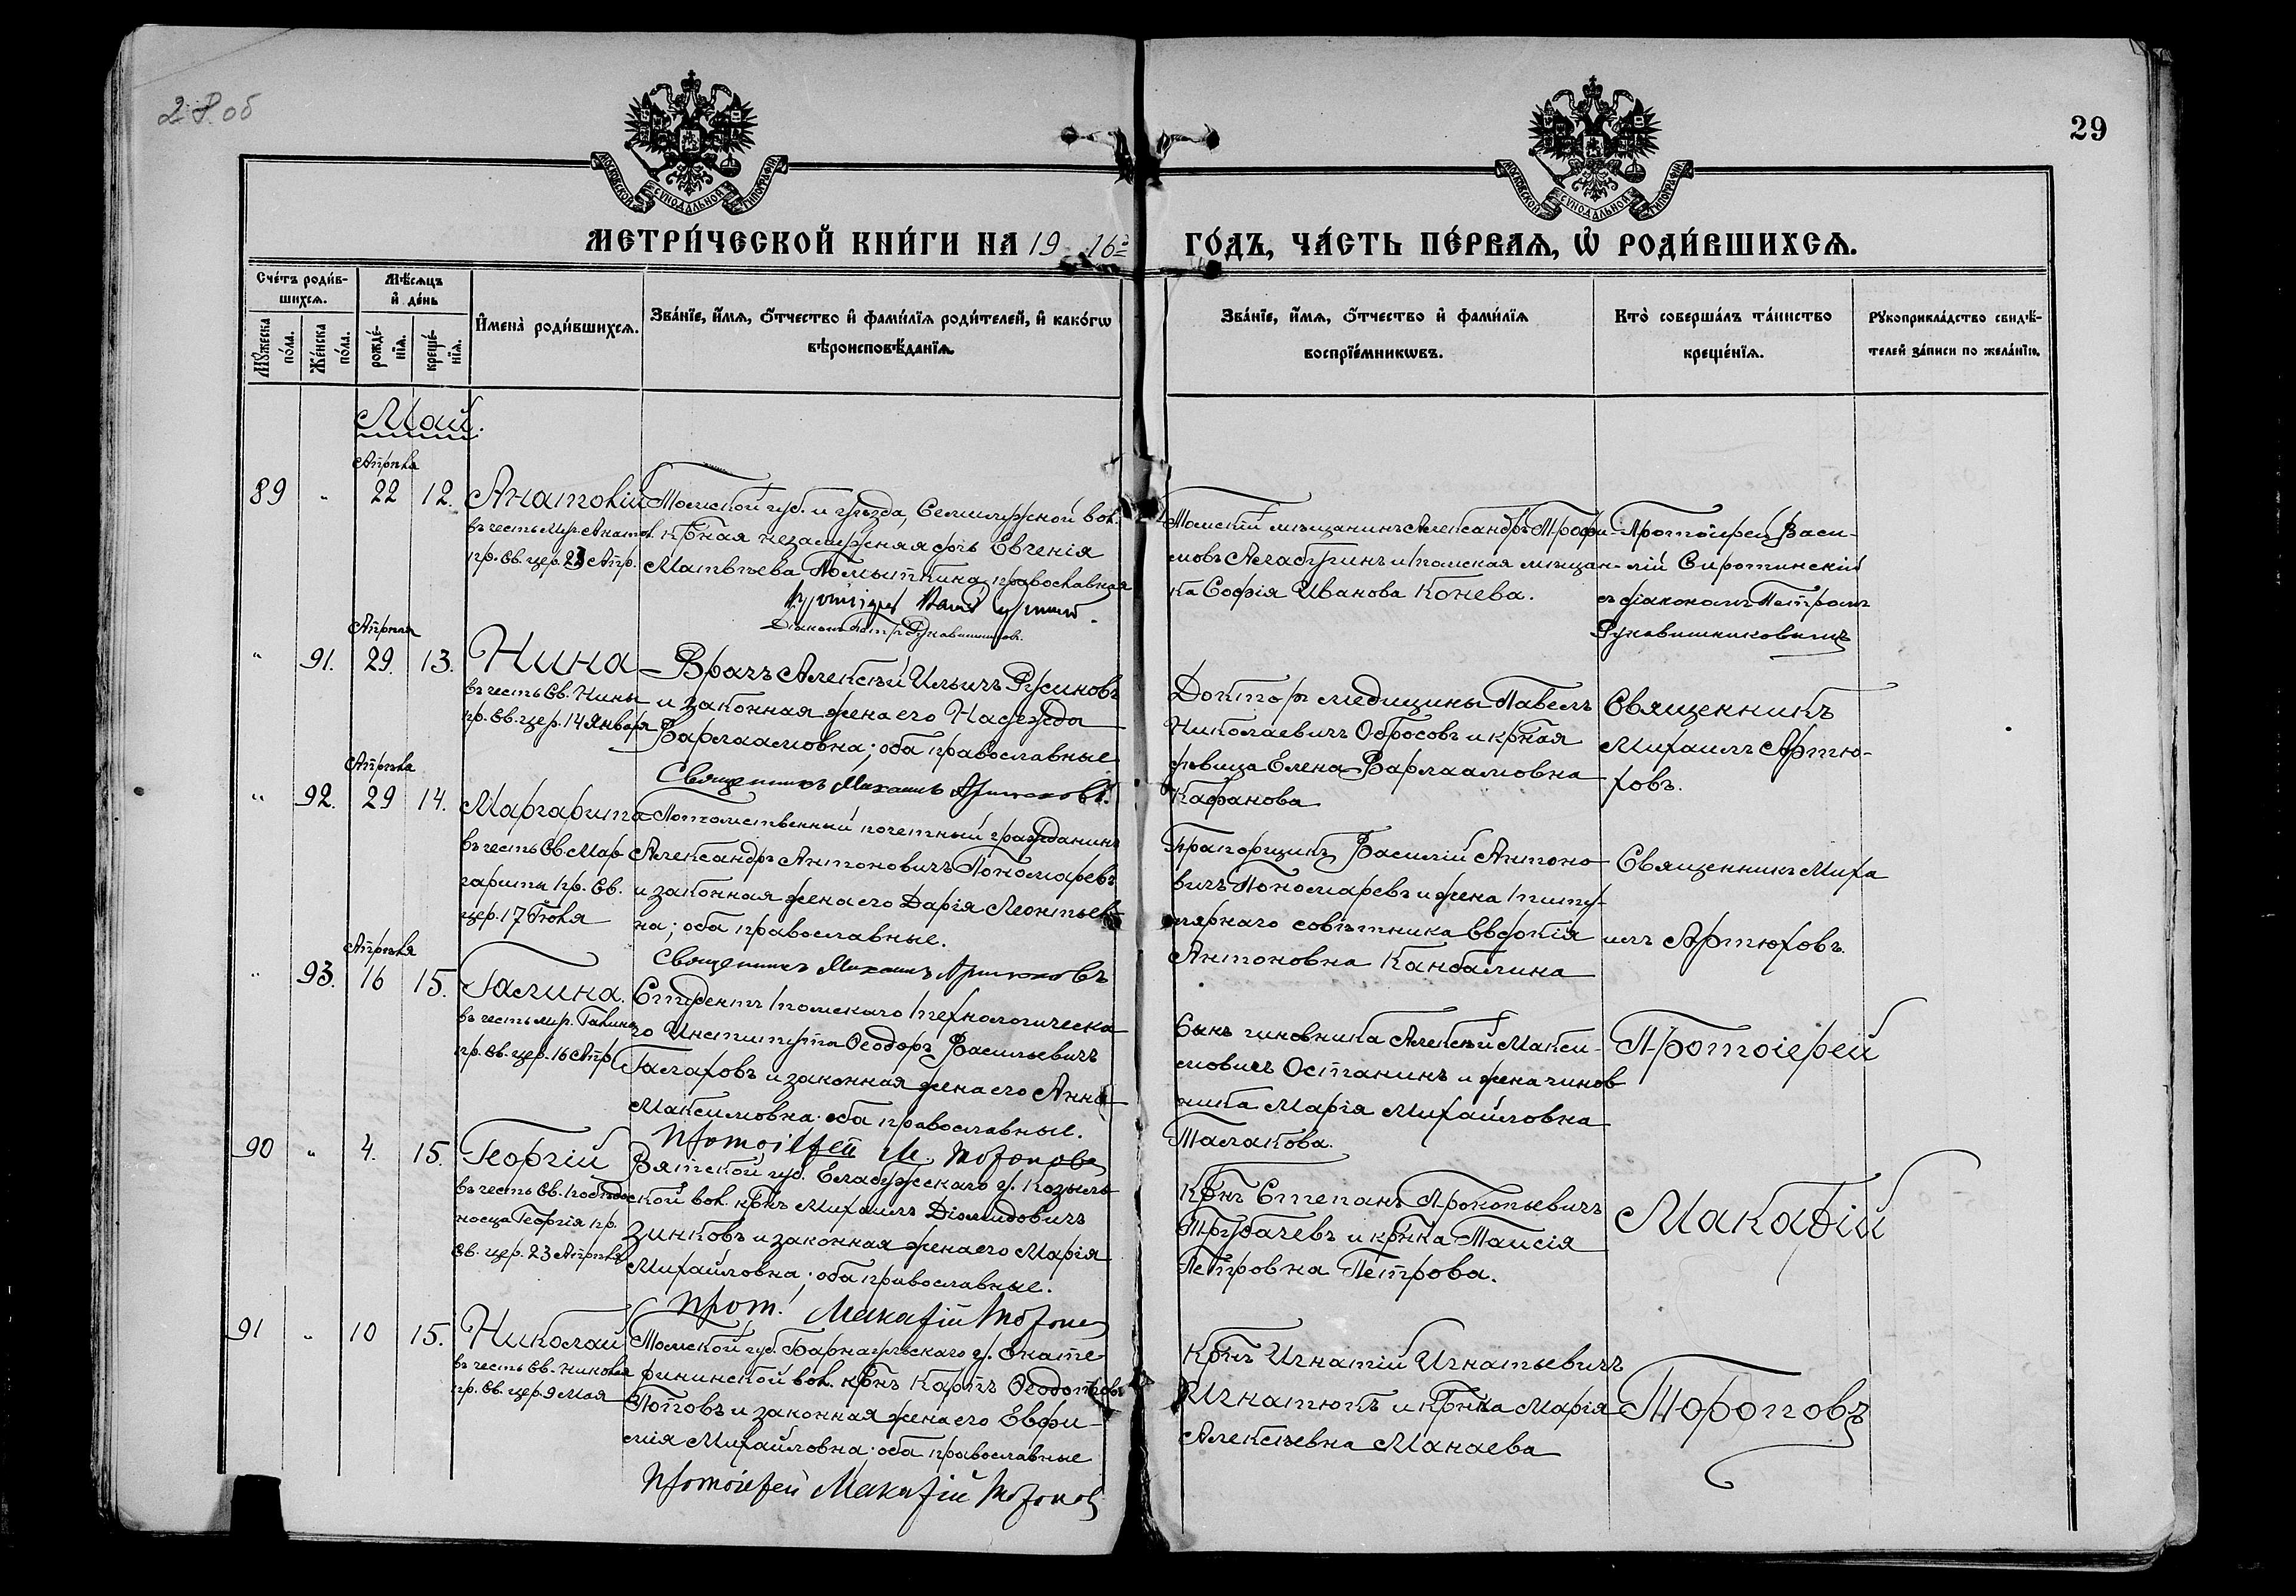 28 об
29
МОСКОВСКОЙ СУНОДАЛЬНОЙ ТИПОГРАФІИ
МОСКОВСКОЙ СУНОДАЛЬНОЙ ТИПОГРАФІИ
МЕТРИ́ЧЕСКОЙ КНИ́ГИ НА 1916й
ГО́ДЪ, ЧА́СТЬ ПЕ́РВАѦ, Ѡ҆ РОДИ́ВШИХСѦ.
Сче́тъ роди́в-
шихсѧ.
Мѣ́сѧцъ
и҆ де́нь
Мꙋ́жеска по́ла.
Же́нска по́ла.
рожде́-
нїѧ.
креще́-
нїѧ.
И҆мена̀ роди́вшихсѧ.
Зва́нїе, и҆́мѧ, ѻ҆́тчество и҆ фами́лїѧ роди́телей, и҆ како́гѡ
вѣроисповѣ́данїѧ.
Зва́нїе, и҆́мѧ, ѻ҆́тчество и҆ фами́лїѧ
воспрїе́мникѡвъ.
Кто̀ соверша́лъ та́инство
креще́нїѧ.
Рꙋкоприкла́дство свидѣ́-
телей за́писи по жела́нїю.
Май.
Апрѣля
89 " 22 12. Анатолій
въ честь муч. Анатол.
пр. Св. цер. 23 Апр.
Томской губ. и уѣзда, Семилужной вол.
кр-ная незамужняя дочь Евгенія
Матвѣева Помыткина, православная
Діаконъ Петръ Рукавишниковъ.
Томскій мѣщанинъ Александръ Трофи-
мовъ Ачабугинъ и томская мѣщан-
ка Софія Иванова Конева.
Протоіерей Васи-
лій Сиротинскій
съ діакономъ Петромъ
Рукавишниковымъ
Апрѣля
" 91. 29. 13. Нина
въ честь Св. Нины
пр. Св. цер. 14 Января
Врачъ Алексѣй Ильичъ Русиновъ
и законная жена его Надежда
Варлаамовна; оба православные
Священникъ Михаилъ Артюховъ.
Докторъ медицины Павелъ
Николаевичъ Обросовъ и кр-ная
дѣвица Елена Варлаамовна
Кафанова
Священникъ
Михаилъ Артю-
ховъ.
Апрѣля
" 92. 29 14. Маргарита
въ честь Св. Мар-
гариты пр. Св.
цер. 17 Іюля
Потомственный почетный гражданинъ
Александръ Антоновичъ Пономаревъ
и законная жена его Дарія Леонтьев-
на; оба православные.
Священникъ Михаилъ Артюховъ
Прапорщикъ Василій Антоно-
вичъ Пономаревъ и жена титу-
лярнаго совѣтника Евдокія
Антоновна Канбалина
Священникъ Миха
илъ Артюховъ.
Апрѣля
" 93. 16 15. Галина.
въ честь муч. Галины
пр. Св. цер. 16 Апр.
Студентъ томскаго технологическа-
го Института Ѳеодоръ Васильевичъ
Галаховъ и законная жена его Анна
Максимовна; оба православные.
Протоіерей М. Торопов
Сынъ чиновника Алексѣй Макси-
мовичъ Останинъ и жена чинов
ника Марія Михайловна
Талакова.
Протоіерей
90 " 4. 15. Георгій
въ честь Св. Побѣдо-
носца Георгія пр.
Св. цер. 23 Апрѣля
Вятской губ. Елабужскаго у. Козыль-
ской вол. кр-нъ Михаилъ Діомидовичъ
Зинковъ и законная жена его Марія
Михайловна; оба православные.
Прот. Макарій Торопов
Кр-нъ Степанъ Прокопьевичъ
Трубачевъ и кр-нка Таисія
Петровна Петрова.
Макарій
91 " 10 15. Николай
въ честь Св. Николая
пр. Св. цер. 9 Мая
Томской губ. Барнаульскаго у. Екате-
рининской вол. кр-нъ Карпъ Ѳеодотовъ
Потовъ и законная жена его Евфи-
мія Михайловна; оба православные
Протоіерей Макарій Торопов
Кр-нъ Игнатій Игнатьевичъ
Игнатюкъ и кр-нка Марія
Алексѣевна Манаева
Тороповъ